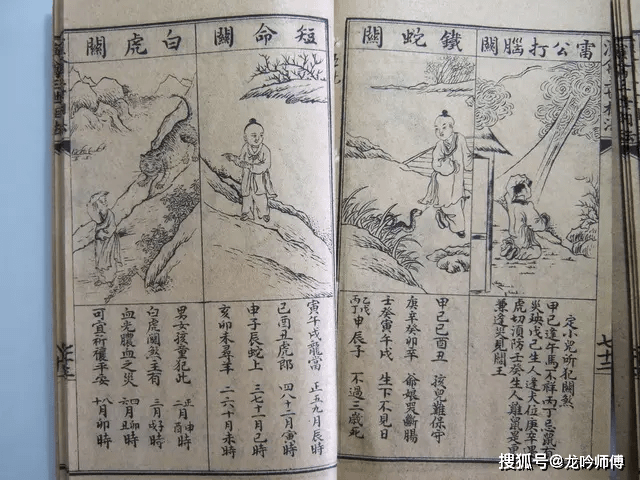 雷公打腦關
定小兒所犯關煞
甲己逢午馬不祥丙丁忌鼠
災殃戊己生人逢犬位庚辛
虎切須防壬癸生人雞鼠是
兼逢災見閻王
七十二
鐵蛇關
甲己巳酉丑 孩兒難保守
庚辛癸卯辛 爺娘哭斷腸
壬癸寅午戌 生下不見日
丙丁申辰子 不過三歲死
短命關
寅午戌龍當 正五九月辰時
巳酉丑虎鄉 四八十二月寅時
申子辰蛇上 三七十一月巳時
亥卯未尋羊 二六十月未時
白虎關
男女孩童犯此 正月申 二月酉
白虎關煞主有 三月戌 時
血光膿血之災 時
可宜祈禳平安 八月卯時
搜狐号@龙吟师傅